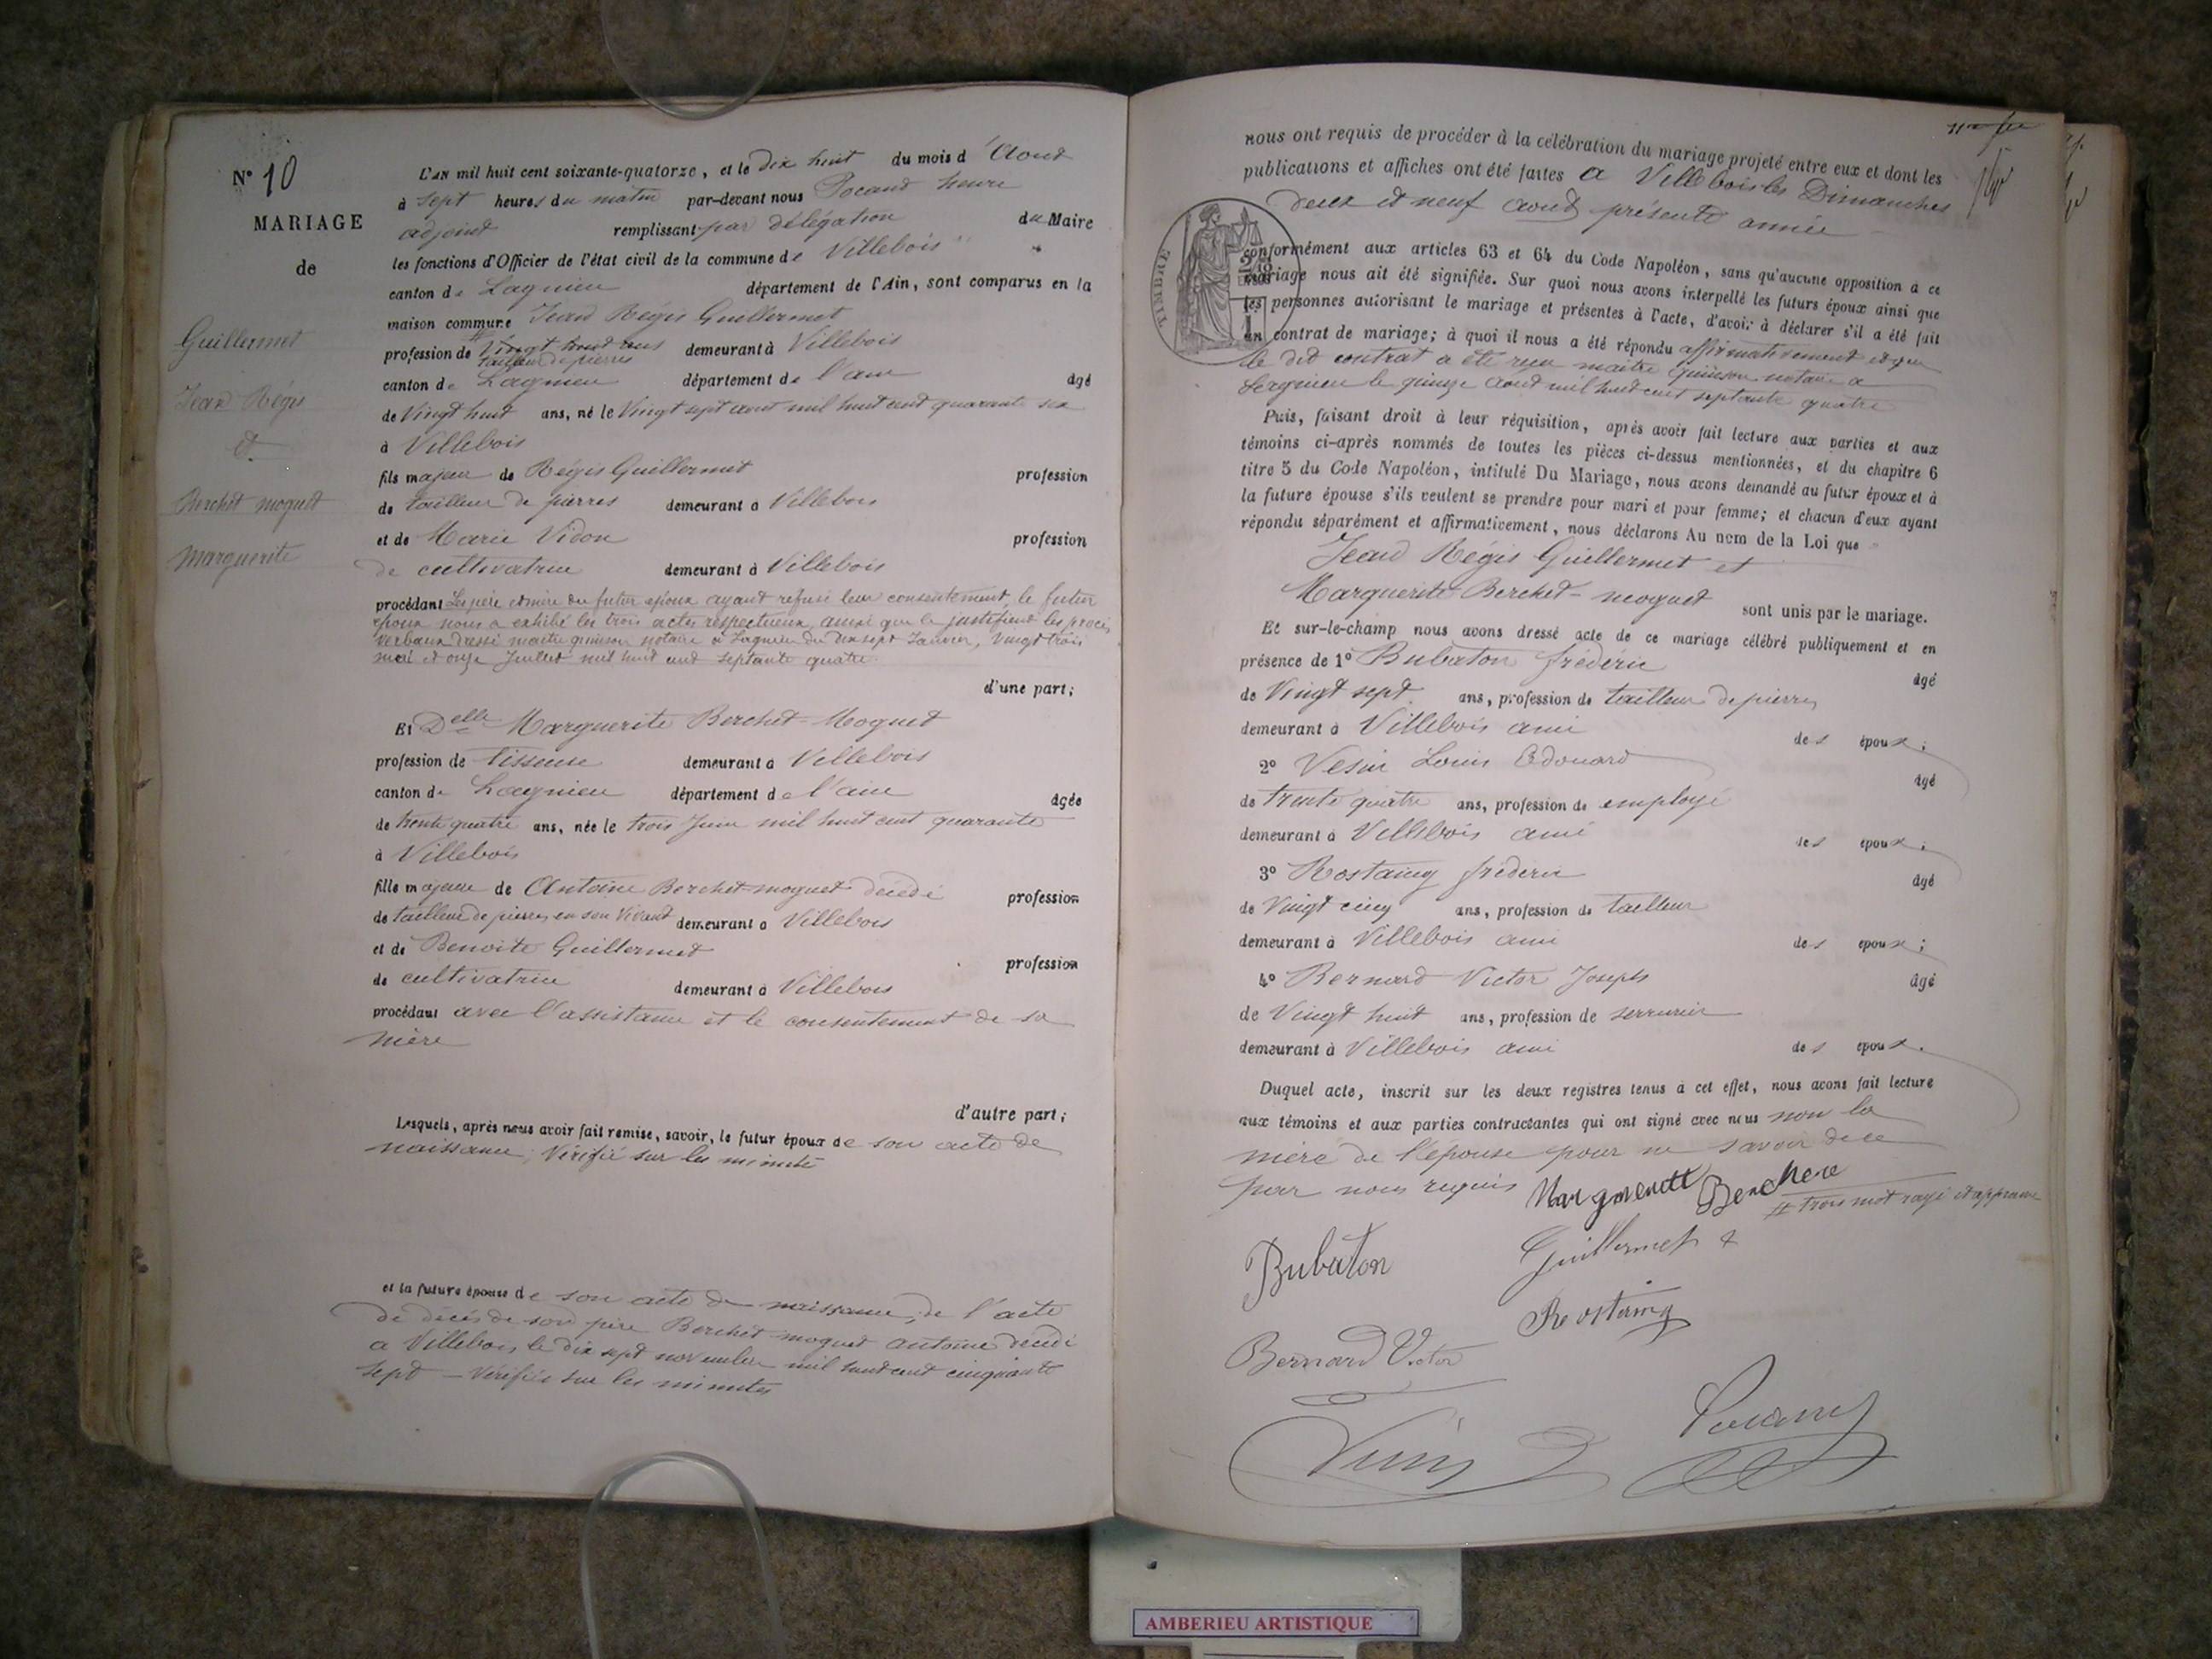 N° 10
MARIAGE
de
Guillermet
Jean Régis
et
Berchet moguet
Marguerite
L'AN mil huit cent soixante-quatorze, et le dix huit du mois d'Aout
à sept heures du matin par-devant nous Pocand henri
adjoint remplissant par délégation du Maire
les fonctions d'Officier de l'état civil de la commune de Villebois
canton de Lagnieu département de l'Ain, sont comparus en la
maison commune Jean Régis Guillermet
profession de Vingt huit ans demeurant à Villebois
tailleur de pierres
canton de Lagnieu département de l'ain âgé
de Vingt huit ans, né le Vingt sept aout mil huit cent quarante six
à Villebois
fils majeur de Régis Guillermet profession
de tailleur de pierres demeurant à Villebois
et de Marie Vidon profession
de cultivatrice demeurant à Villebois
procédant Les père et mère du futur époux ayant refusé leur consentement, le futur
époux nous a exhibé les trois actes respectueux, ainsi que le justifient les procès
verbaux dressé maitre quinson notaire à Lagnieu du dix sept Janvier, Vingt trois
mai et onze Juillet mil huit cent septante quatre
d'une part;
Et Delle Marguerite Berchet-Moguet
profession de tisseuse demeurant à Villebois
canton de Lagnieu département de l'ain âgée
de trente quatre ans, née le trois Juin mil huit cent quarante
à Villebois
fille majeure de Antoine Berchet-moguet décédé profession
de tailleur de pierres en son Vivant demeurant à Villebois
et de Benoite Guillermet profession
de cultivatrice demeurant à Villebois
procédant avec l'assistance et le consentement de sa
mère
d'autre part;
Lesquels, après nous avoir fait remise, savoir, le futur époux de son acte de
naissance, Vérifié sur les minute
et la future épouse de son acte de naissance, de l'acte
de décès de son père Berchet moguet antoine décédé
a Villebois le dix sept novembre mil huit cent cinquante
sept - Vérifiés sur les minutes
nous ont requis de procéder à la célébration du mariage projeté entre eux et dont les
publications et affiches ont été faites a Villebois les Dimanches
deux et neuf aout présente année
TIMBRE
conformément aux articles 63 et 64 du Code Napoléon, sans qu'aucune opposition à ce
mariage nous ait été signifiée. Sur quoi nous avons interpellé les futurs époux ainsi que
les personnes autorisant le mariage et présentes à l'acte, d'avoir à déclarer s'il a été fait
un contrat de mariage; à quoi il nous a été répondu affirmativement et que
le dit contrat a été reçu maitre Quinson notaire a
Lagnieu le quinze aout mil huit cent septante quatre
Puis, faisant droit à leur réquisition, après avoir fait lecture aux parties et aux
témoins ci-après nommés de toutes les pièces ci-dessus mentionnées, et du chapitre 6
titre 5 du Code Napoléon, intitulé Du Mariage, nous avons demandé au futur époux et à
la future épouse s'ils veulent se prendre pour mari et pour femme; et chacun d'eux ayant
répondu séparément et affirmativement, nous déclarons Au nom de la Loi que
Jean Régis Guillermet et
Marguerite Berchet-moguet sont unis par le mariage.
Et sur-le-champ nous avons dressé acte de ce mariage célébré publiquement et en
présence de 1° Bubaton frédéric âgé
de Vingt sept ans, profession de tailleur de pierres
demeurant à Villebois ami des époux;
2° Vesin Louis Edouard âgé
de trente quatre ans, profession de employé
demeurant à Villebois ami des époux;
3° Rostaing frédéric âgé
de Vingt cinq ans, profession de tailleur
demeurant à Villebois ami des époux;
4° Bernard Victor Joseph âgé
de Vingt huit ans, profession de serrurier
demeurant à Villebois ami des époux.
Duquel acte, inscrit sur les deux registres tenus à cet effet, nous avons fait lecture
aux témoins et aux parties contractantes qui ont signé avec nous non la
mère de l'épouse pour ne savoir de ce
par nous requis Margueritt Berchere
# trois mot rayé et approuvé
Bubaton Guillermet
Rostaing
Bernard Victor
AMBERIEU ARTISTIQUE